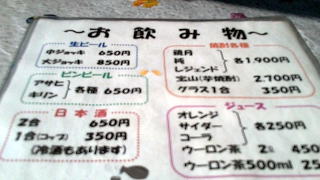 ～お飲み物～
生ビール
中ジョッキ 650円
大ジョッキ 850円
ビンビール
アサヒ
キリン
各種 650円
日本酒
2合 650円
1合(コップ) 350円
(冷酒もあります)
焼酎各種
鏡月
純
レジェンド
各1,900円
宝山(芋焼酎) 2,700円
グラス1合 350円
ジュース
オレンジ
サイダー
コーラ
各250円
ウーロン茶 2ℓ 450
ウーロン茶500ml 25